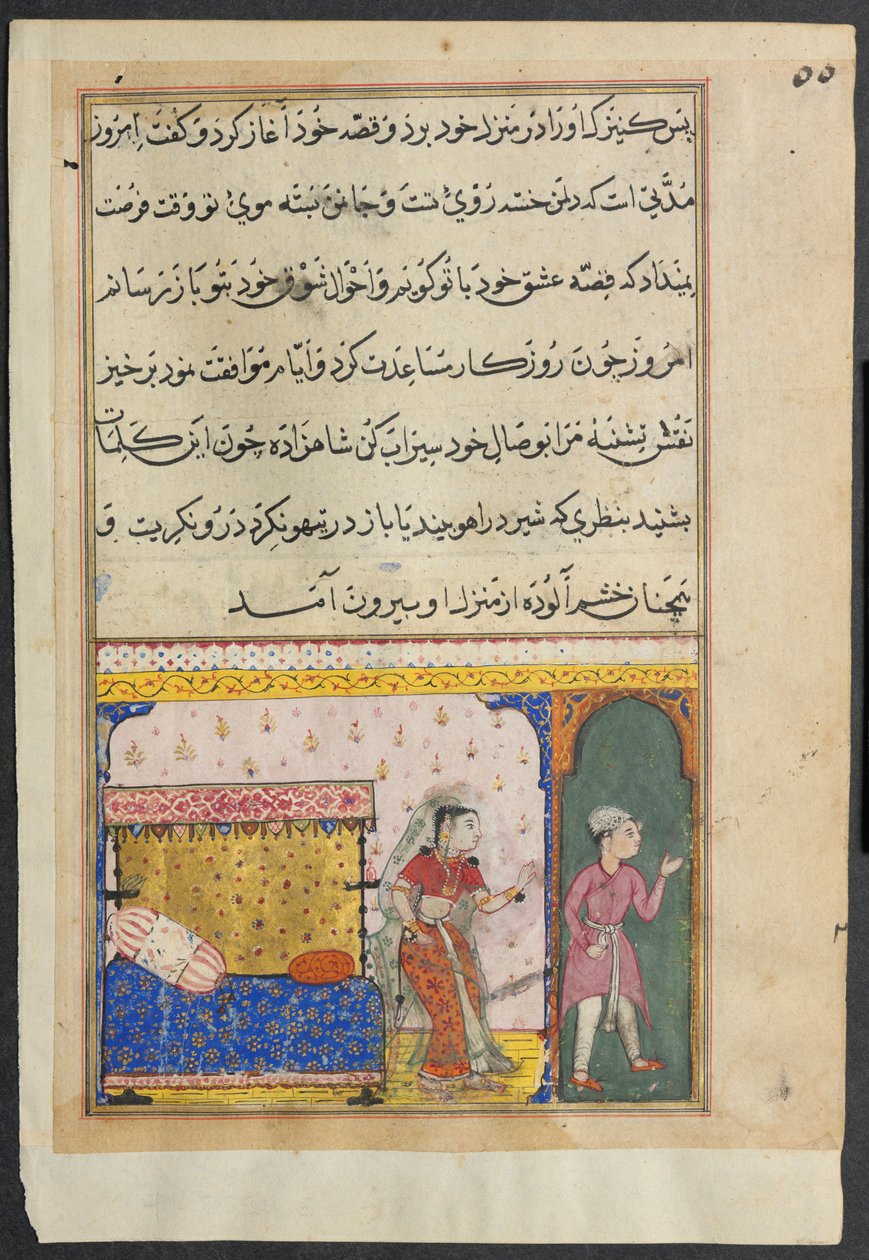 ۵۵
پس کنیزک او را در منزل خود برد و قصّه خود آغاز کرد و گفت امروز
مدّتی است که دل من خسته روی تست و جان من بسته موی تو وقت فرصت
نمیداد که قصّه عشق خود با تو گویم و احوال شوق خود بتو باز رسانم
امروز چون روزگار مساعدت کرد و ایّام موافقت نمود برخیز
نفس تشنهٔ مرا بوصال خود سیراب کن شاهزاده چون این کلمات
بشنید بنظری که شیر در اهو بیند یا باز در تیهو نگرد درو نگریست و
همچنان خشم آلوده از منزل او بیرون آمد